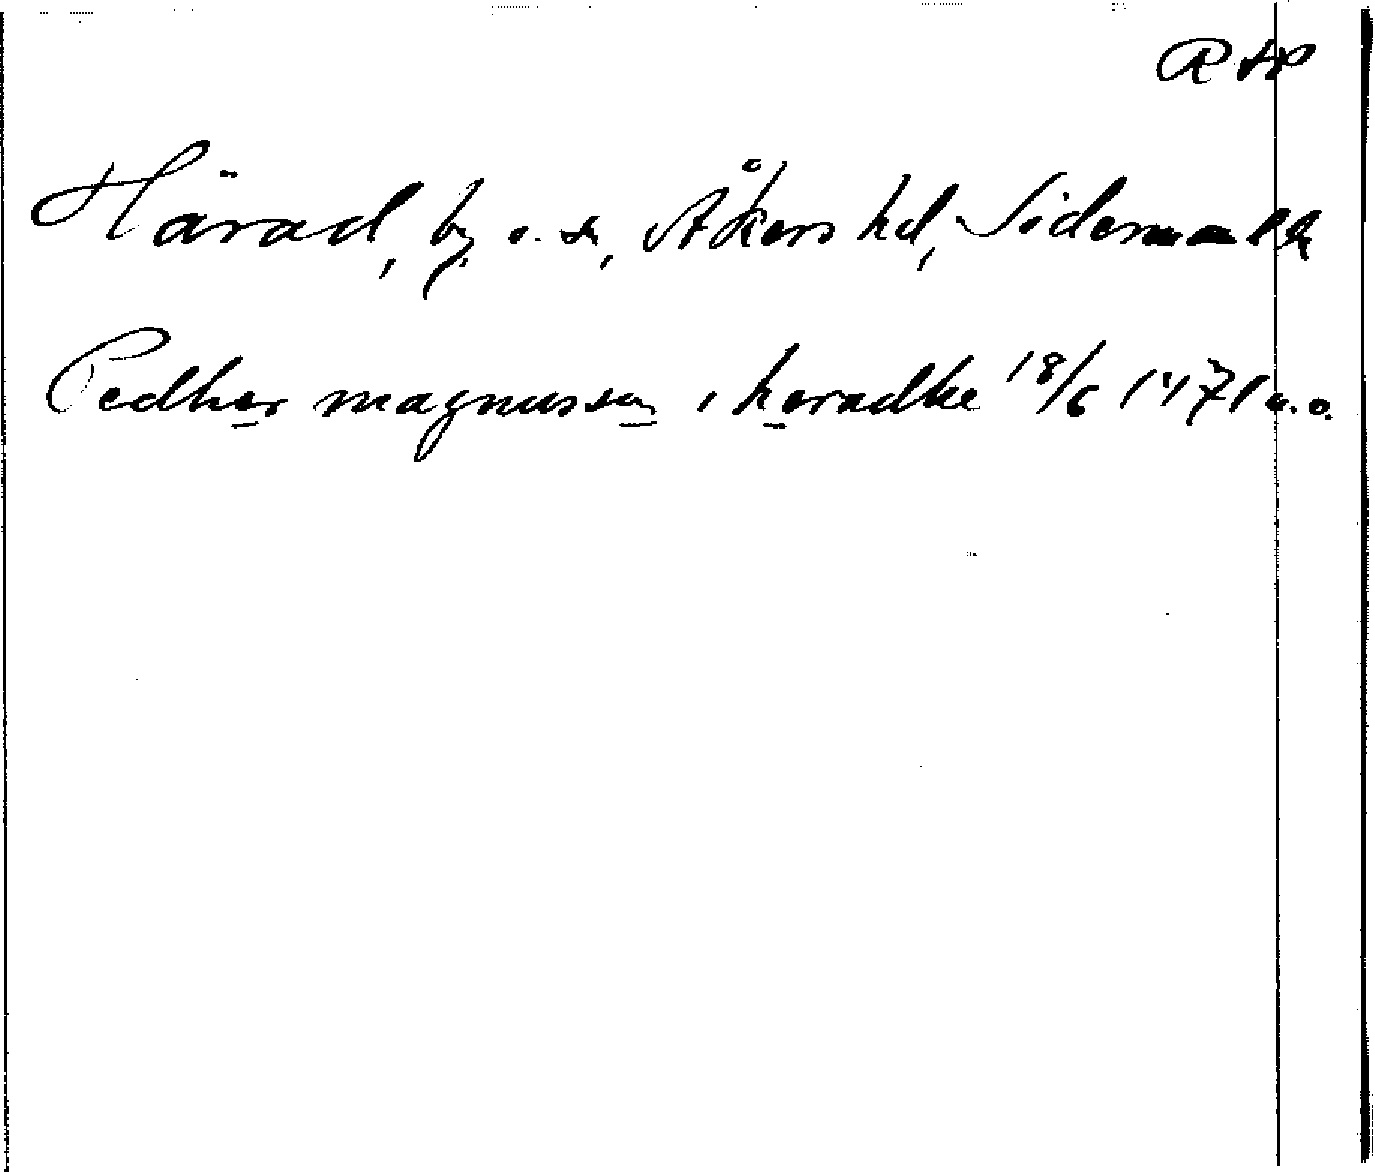 Härad, by o. sn, Åkers hd, Södermanl
Pedher magnusson i heradhe 18/6 1471 o.